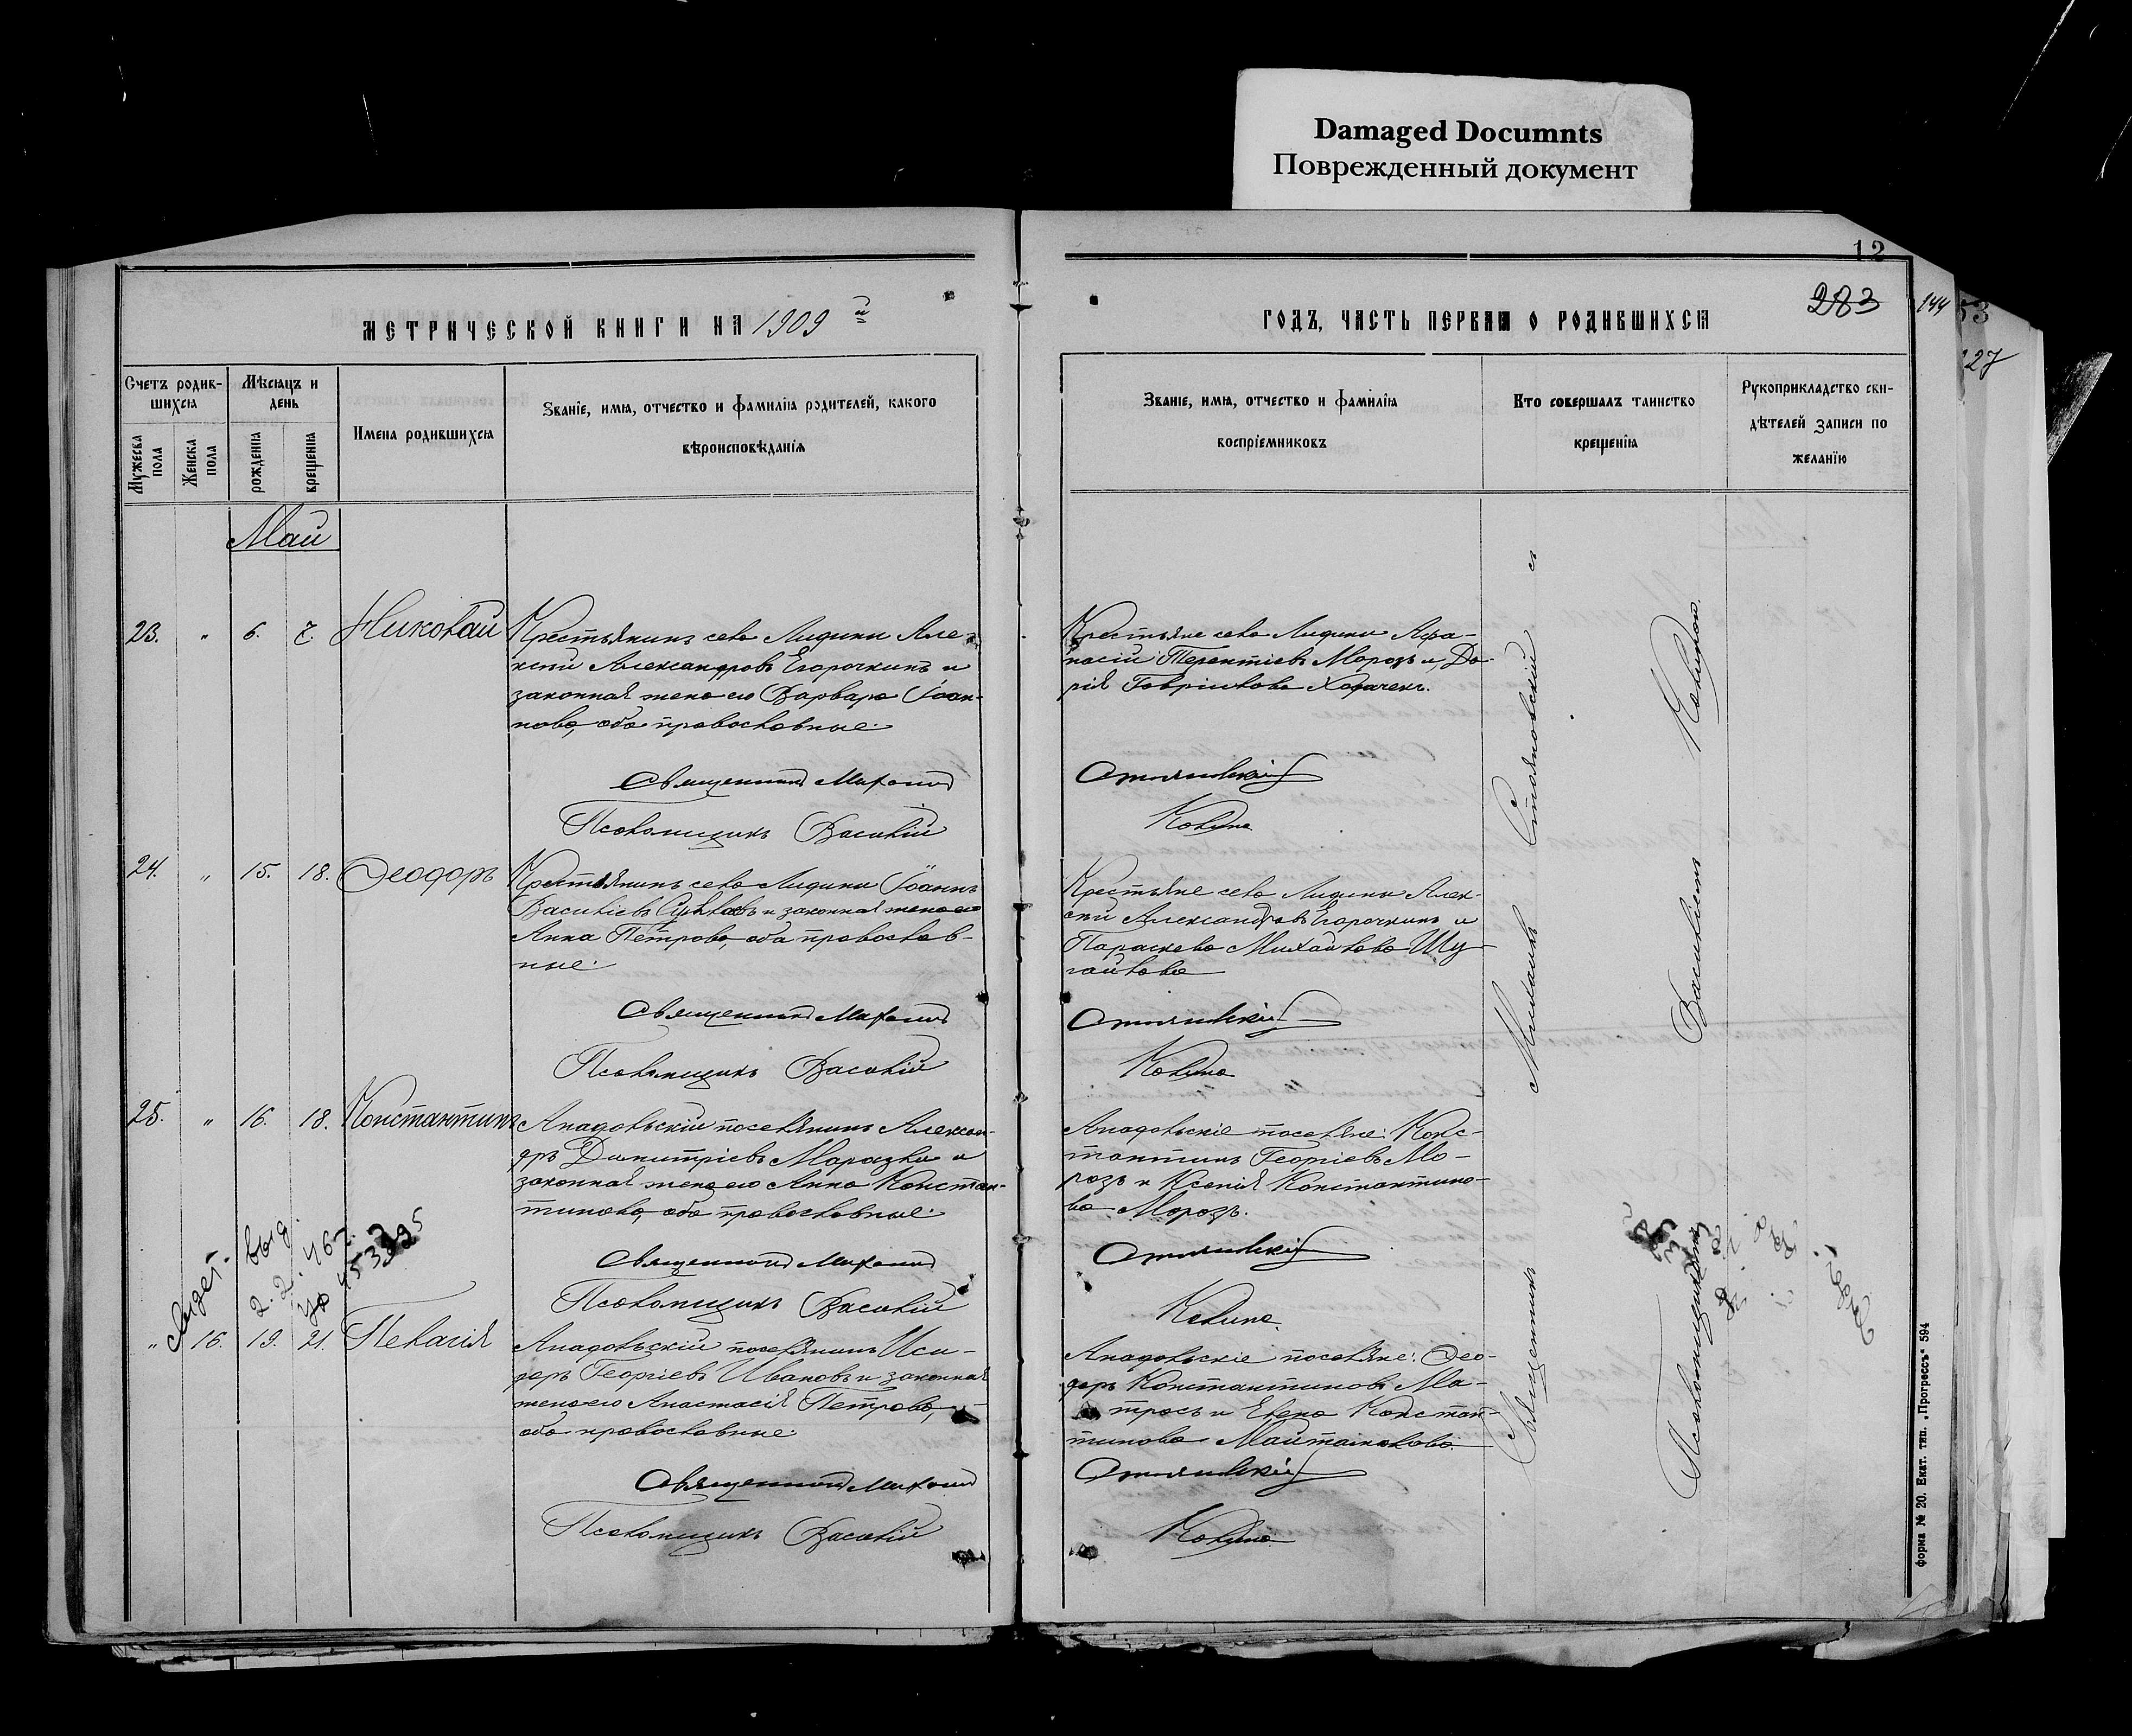 Damaged Documnts
Поврежденный документ
12
283
144
53
27
МЕТРИЧЕСКОЙ КНИГИ НА 1909 й
ГОДЪ, ЧАСТЬ ПЕРВАЯ О РОДИВШИХСЯ
Счетъ родив-
шихся
Мужеска пола
Женска пола
Мѣсяцъ и
день
рожденія
крещенія
Имена родившихся
Званіе, имя, отчество и фамилія родителей, какого
вѣроисповѣданія
Званіе, имя, отчество и фамилія
воспріемниковъ
Кто совершалъ таинство
крещенія
Рукоприкладство сви-
дѣтелей записи по
желанію
Май
23. " 6. 7. Николай
Крестьянинъ села Лидини Але-
ксѣй Александровъ Егорочкинъ и
законная жена его Варвара Іоан-
нова, оба православные.
Священникъ Михаилъ
Псаломщикъ Василій
Крестьяне села Лидини Афа-
насій Терентіевъ Морозъ и Да-
рія Гавріилова
Стояновскій
Калина
24. " 15. 18. Ѳеодоръ
Крестьянинъ села Лидини Іоаннъ
Василіевъ и законная жена его
Анна Петрова, оба православ-
ные.
Священникъ Михаилъ
Псаломщикъ Василій
Крестьяне села Лидини Алек-
сѣй Александровъ Егорочкинъ и
Параскева Михайлова Шу-
гайлова
Стояновскій
Калина
25. " 16. 18. Константинъ
Анадольскій поселянинъ Алексан-
дръ Димитріевъ и
законная жена его Анна Констан-
тинова, оба православные.
Священникъ Михаилъ
Псаломщикъ Василій
Анадольскіе поселяне: Конс-
тантинъ Георгіевъ Мо-
розъ и Ксенія Константино-
ва Морозъ.
Стояновскій
Калина
выд.
" 16. 19. 21. Пелагія
Анадольскій поселянинъ Иси-
доръ Георгіевъ Ивановъ и законная
жена его Анастасія Петрова,
оба православные.
Священникъ Михаилъ
Псаломщикъ Василій
Анадольскіе поселяне: Ѳео-
доръ Константиновъ Ма-
тросъ и Елена Констан-
тинова
Стояновскій
Калина
Священникъ Михаилъ Стояновскій съ
Псаломщикомъ Василіемъ Калиною.
форма № 20. Екат. тип. „Прогрессъ“ 594